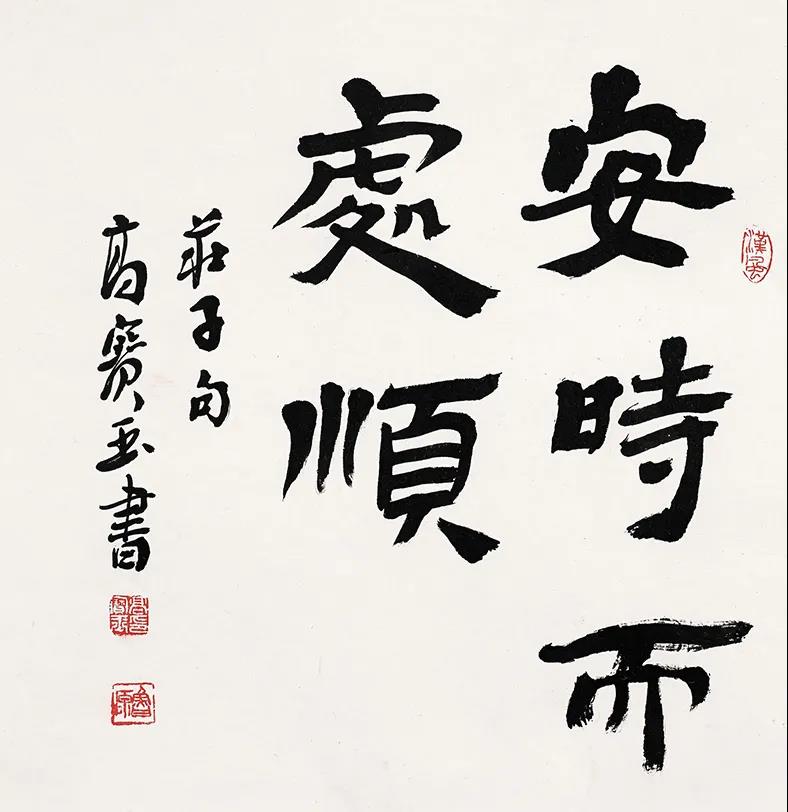 安時而
處順
莊子句
高寶玉書
漢風